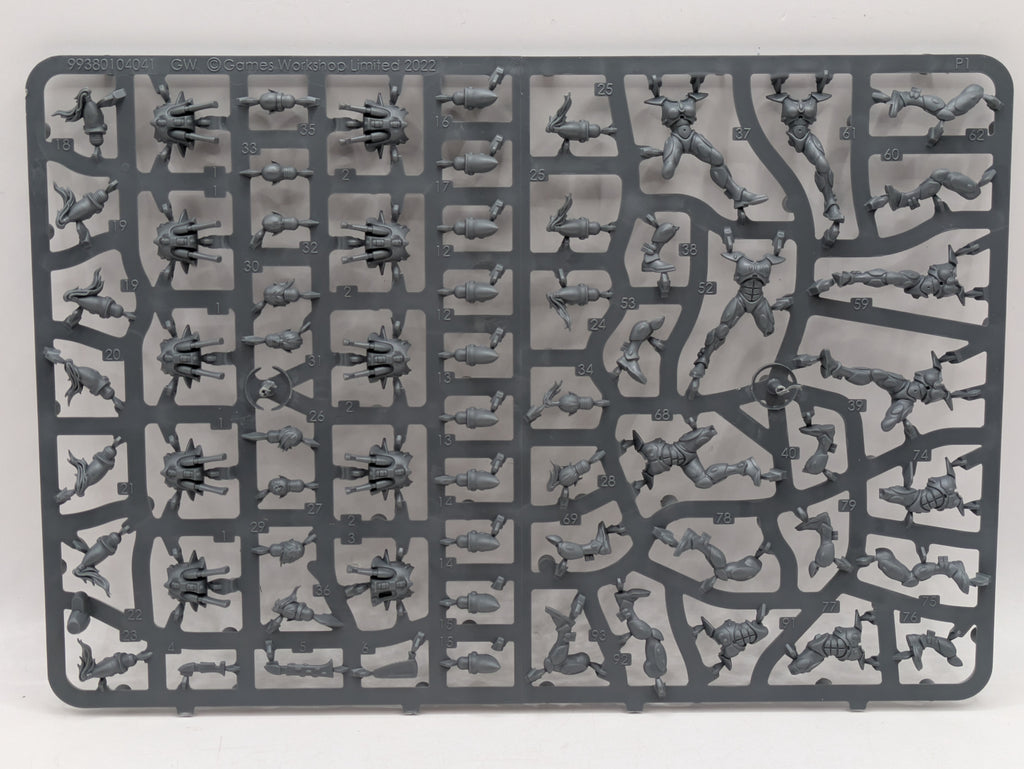 99380104041 GW ©Games Workshop Limited 2022 P1
18
1
35
2
16
25
37
61
62
33
1
17
25
60
19
32
2
12
38
30
53
52
59
19
1
12
24
20
31
2
13
34
39
1
26
13
68
40
74
21
27
12
28
1
2
69
78
79
29
3
14
36
75
22
15
77
76
23
4
5
6
15
93
92
91